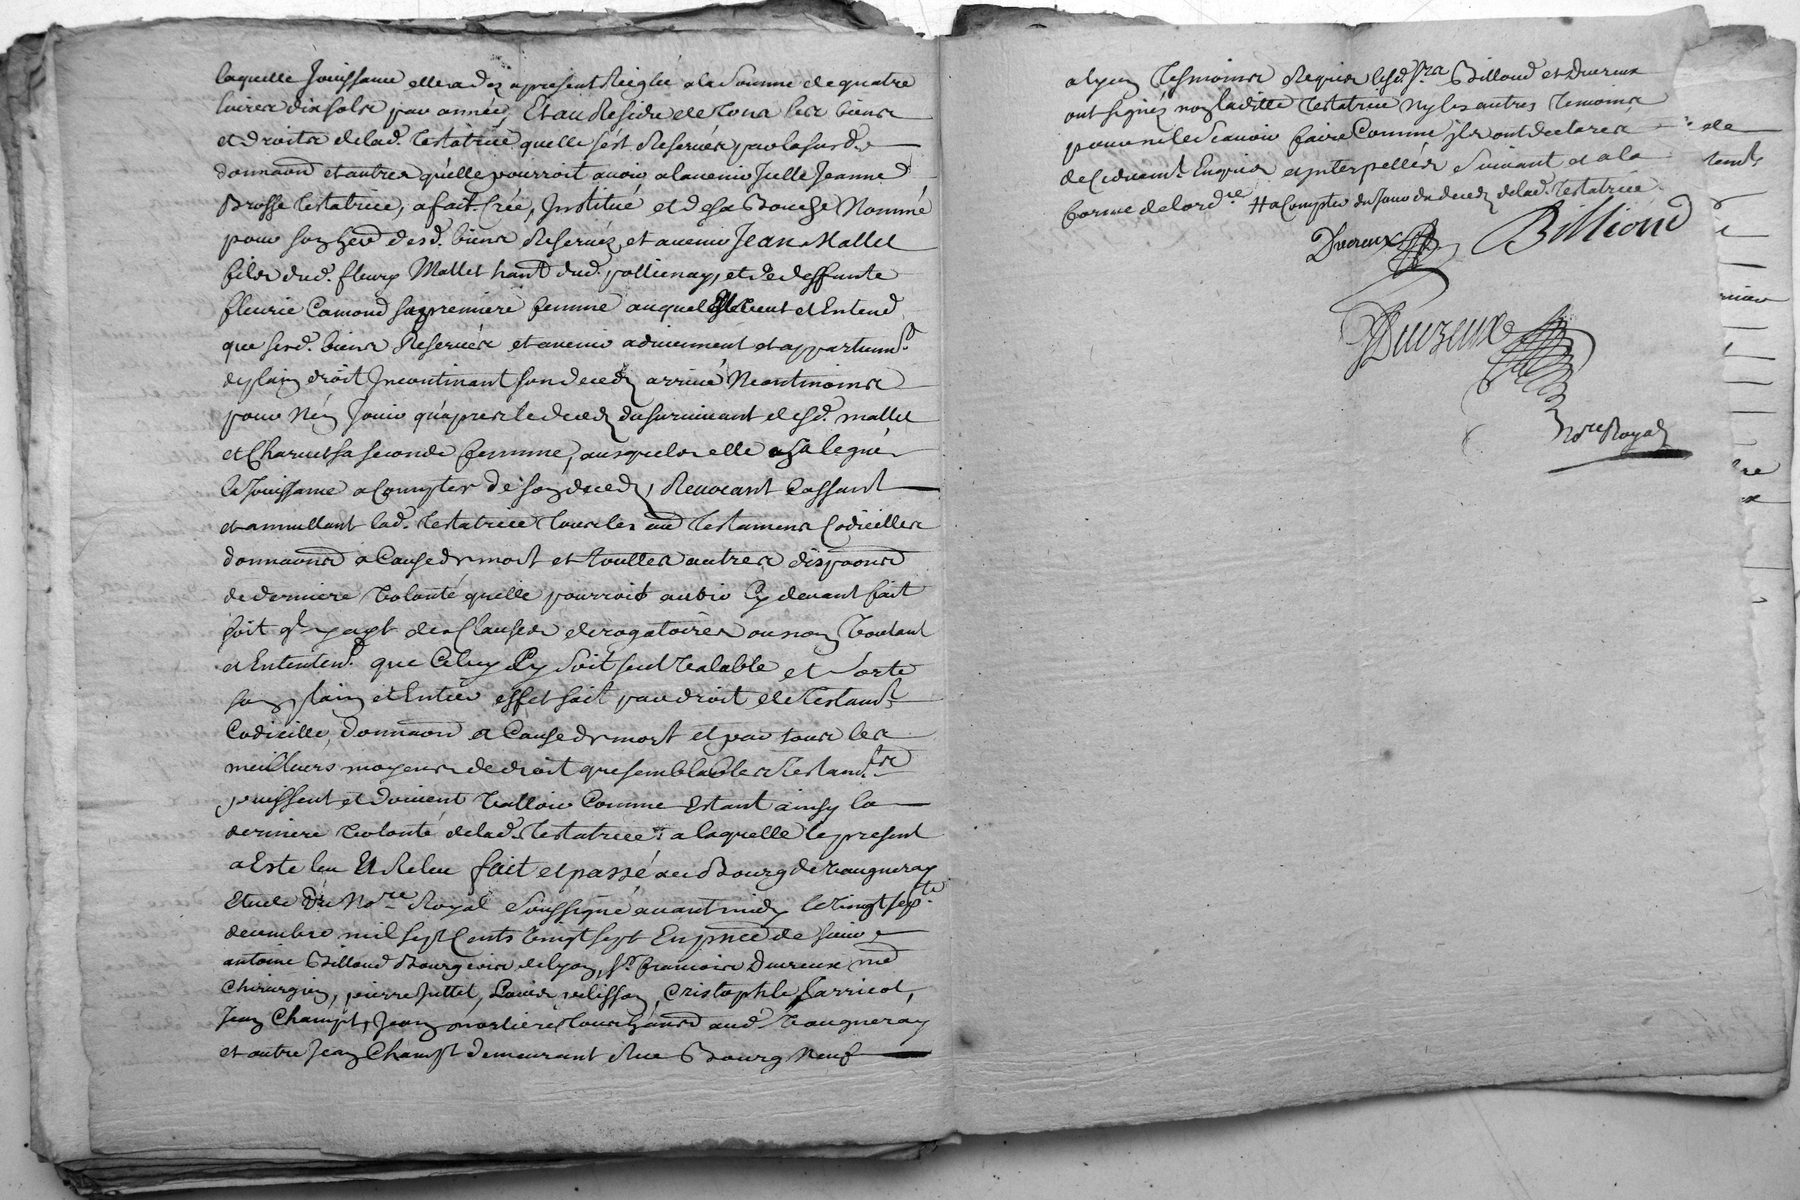 laquelle Jouissance elle a dez apresent Reiglée a la Somme de quatre
livres dix sols par année, Et au Residu de tous les biens
et droits de lad. testatrice quelle s'est Reservés, par la susd.
donnaon et autres qu'elle pourroit avoir a lavenir Jcelle Jeanne
Brosse testatrice, a fait, Créé, Jnstitué et de sa Bouche Nommé
pour son herd desd. biens Reservez, et avenir Jean Mallet
fils dud. fleury Mallet hant dud. pollienay, et de deffunte
fleurie Camond sa premiere femme auquel Elle veut et Entend
que sesd. biens Reservés et avenir adviennent et appartiennt
de plain droit Jncontinant son decedz arrivé Neantmoins
pour N'en Jouir qu'apres le decedz du survivant desd. mallet
et Charvet sa seconde femme, ausquels elle en a legué
la Jouissance a Compter de son decedz, Revocant Cassant
et annullant lad. testatrice tous les aud testamens Codicilles
donnaons a Cause de mort et touttes autres dispoons
de derniere volonté quelle pourroit avoir Cy devant fait
soit ql y ayt des Clauses derogatoires ou non voulant
et Entendend que Celuy Cy soit seul valable et sorte
son plain et Entier effet soit par droit de testamt
Codicille, donnaon a Cause de mort et par tous les
meilleurs moyens de droit que semblables testamts
puissent et doivent valloir Comme Estant ainsy la
derniere volonté de lad. testatrice a laquelle le present
a Esté leu Et Releu fait et passé au Bourg de vaugneray
Etude du Nore Royal soussigné avant midy le vingt sept
decembre mil sept Cents vingt sept En pnce de sieur
antoine Billiond Bourgeois de lyon, sr. francois Devreux me
Chirurgien, pierre Juttet, Louis pelisson, Cristophle Jarricot,
Jean Champt, Jean morliere tous hants aud. vaugneray
et autre Jean Champt demeurant Rue Bourg Neuf
a lyon tesmoins Requis lesd. srs Billioud et Devreux
ont signés non laditte testatrice Ny les autres temoins
pour ne le sçavoir faire Comme jls ont declarés
de Ce duemt. Enquis et interpellés suivant et a la
forme de lordre # a Compter du jour du decedz de lad. testatrice
Devreux Billioud
Devreux
Nore Royal